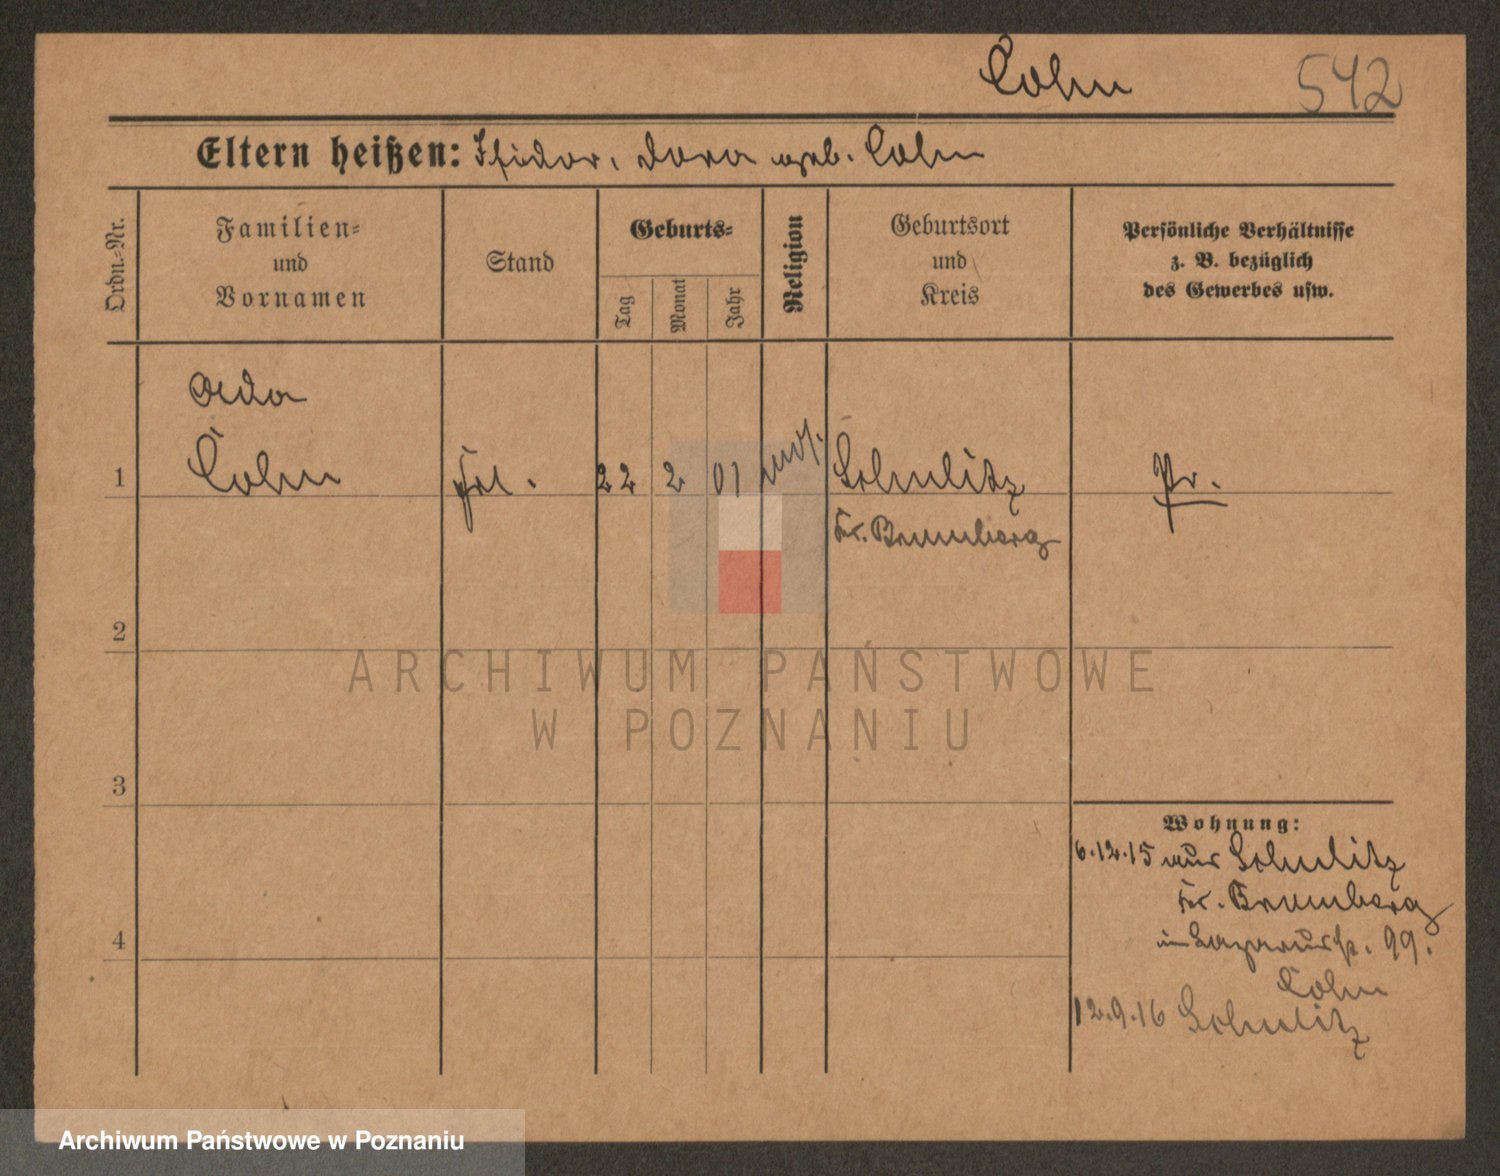 Cohn 542
Eltern heißen: Isidor, Dora geb. Cohn
Ordn.-Nr.
Familien-
und
Vornamen
Stand
Geburts-
Tag
Monat
Jahr
Religion
Geburtsort
und
Kreis
Persönliche Verhältnisse
z. B. bezüglich
des Gewerbes usw.
Cohn
1
Frl. 22 2 01 mos. Schulitz Pr.
Kr. Bromberg
2
ARCHIWUM PAŃSTWOWE
W POZNANIU
3
Wohnung:
6.12.15 aus Schulitz
Kr. Bromberg
4
99.
Cohn
12.9.16 Schulitz
Archiwum Państwowe w Poznaniu